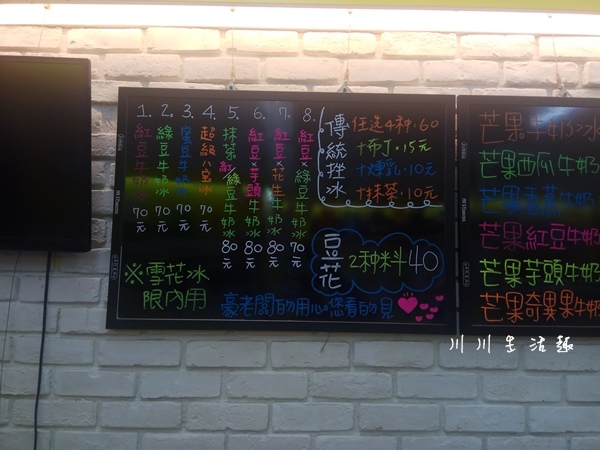 1. 紅豆牛奶冰 70元
2. 綠豆牛奶冰 70元
3. 蜜豆牛奶冰 70元
4. 超級八宝冰 70元
5. 抹茶紅/綠豆牛奶冰 80元
6. 紅豆×芋頭牛奶冰 80元
7. 紅豆×花生牛奶冰 80元
8. 紅豆×綠豆牛奶冰 70元
傳統挫冰
任选4种:60
+布丁:15元
+煉乳:10元
+抹茶:10元
豆花
2种料40
※雪花冰
限內用
豪老闆的用心您看的見
芒果牛奶冰
芒果西瓜牛奶
芒果香蕉牛奶
芒果紅豆牛奶
芒果芋頭牛奶
芒果奇異果牛奶
川川生活趣